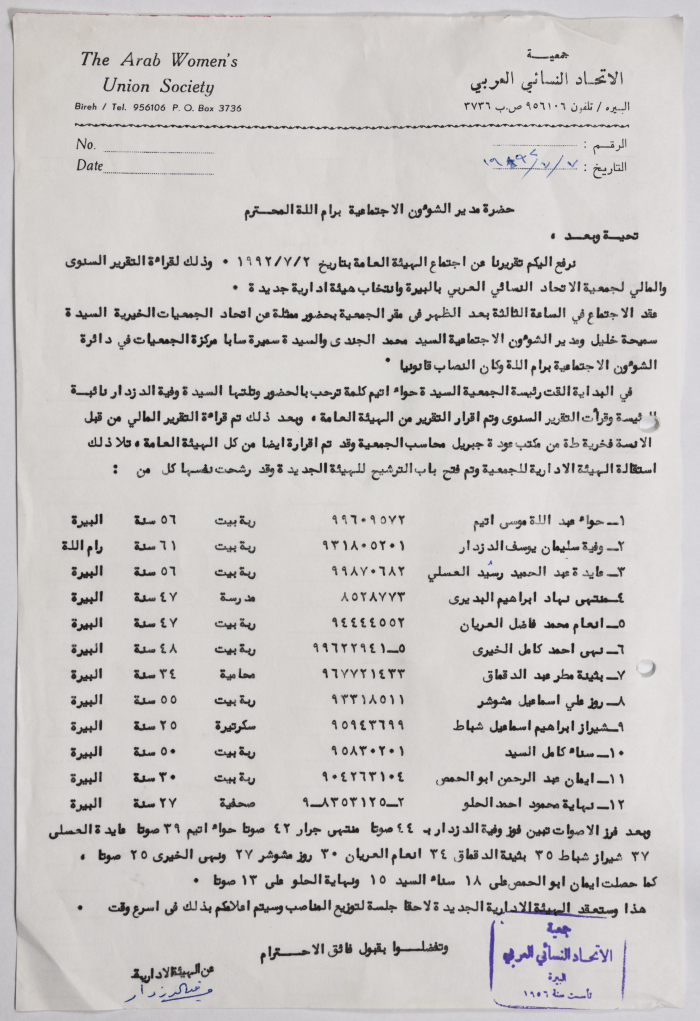 The Arab Women's
Union Society
Bireh / Tel. 956106 P. O. Box 3736
جمعيـــة
الاتحاد النسائي العربي
البيره / تلفون ٩٥٦١٠٦ ص.ب ٣٧٣٦
No.
Date
الرقـم :
التاريخ : ١٩٩٢/٧/٧
حضرة مدير الشوءون الاجتماعية برام اللة المحترم
تحية وبعد ،
نرفع اليكم تقريرنا عن اجتماع الهيئة العامة بتاريخ ١٩٩٢/٧/٢ ٠ وذلك لقراءة التقرير السنوى
والمالي لجمعية الاتحاد النسائي العربي بالبيرة وانتخاب هيئة ادارية جديدة ٠
عقد الاجتماع في الساعة الثالثة بعد الظهر فى مقر الجمعية بحضور ممثلة عن اتحاد الجمعيات الخيرية السيدة
سميحة خليل ومدير الشوءون الاجتماعية السيد محمد الجندى والسيدة سميرة سابا مركزة الجمعيات في دائرة
الشوءون الاجتماعية برام اللة وكان النصاب قانونيا ٠
في البداية القت رئيسة الجمعية السيدة حواء اتيم كلمة ترحب بالحضور وتلتها السيدة وفية الدزدار نائبة
الرئيسة وقرأت التقرير السنوى وتم اقرار التقرير من الهيئة العامة ، وبعد ذلك تم قراءة التقرير المالي من قبل
الانسة فخرية طة من مكتب عودة جبريل محاسب الجمعية وقد تم اقرارة ايضا من كل الهيئة العامة ، تلا ذلك
استقالة الهيئة الادارية للجمعية وتم فتح باب الترشيح للهيئة الجديدة وقد رشحت نفسها كل من :
١ــ حواء عبد اللة موسى اتيم ٩٩٦٠٩٥٧٢ ربة بيت ٥٦ سنة البيرة
٢ــ وفية سليمان يوسف الدزدار ٩٣١٨٠٥٢٠١ ربة بيت ٦١ سنة رام اللة
٣ــ عايدة عبد الحميد رشيد العسلي ٩٩٨٧٠٦٨٢ ربة بيت ٥٦ سنة البيرة
٤ــ منتهى نهاد ابراهيم البديرى ٨٥٢٨٧٧٣ مدرسة ٤٧ سنة البيرة
٥ــ انعام محمد فاضل العريان ٩٤٤٤٤٥٥٢ ربة بيت ٤٧ سنة البيرة
٦ــ نهى احمد كامل الخيرى ٥ــ٩٩٦٢٢٩٤١ ربة بيت ٤٨ سنة البيرة
٧ــ بثينة مطر عبد الدقماق ٩٦٧٧٢١٤٣٣ محامية ٣٤ سنة البيرة
٨ــ روز علي اسماعيل مشوشر ٩٣٣١٨٥١١ ربة بيت ٥٥ سنة البيرة
٩ــ شيراز ابراهيم اسماعيل شباط ٩٥٩٤٣٦٩٩ سكرتيرة ٢٥ سنة البيرة
١٠ــ سناء كامل السيد ٩٥٨٣٠٢٠١ ربة بيت ٥٠ سنة البيرة
١١ــ ايمان عبد الرحمن ابو الحمص ٩٠٤٢٦٣١٠٤ ربة بيت ٣٠ سنة البيرة
١٢ــ نهاية محمود احمد الحلو ٢ــ٨٣٥٣١٢٥ــ٩ صحفية ٢٧ سنة البيرة
وبعد فرز الاصوات تبين فوز وفية الدزدار بـ ٤٤ صوتا منتهى جرار ٤٢ صوتا حواء اتيم ٣٩ صوتا عايدة العسلى
٣٧ شيراز شباط ٣٥ بثينة الدقماق ٣٤ انعام العريان ٣٠ روز مشوشر ٢٧ ونهى الخيرى ٢٥ صوتا ،
كما حصلت ايمان ابو الحمص على ١٨ سناء السيد ١٥ ونهاية الحلو على ١٣ صوتا ٠
هذا وستعقد الهيئة الادارية الجديدة لاحقا جلسة لتوزيع المناصب وسيتم اعلامكم بذلك فى اسرع وقت ٠
وتفضلــوا بقبول فائق الاحــترام
عن الهيئة الادارية
وفية الدزدار
جمعية
الاتحاد النسائي العربي
البيرة
تأسست سنة ١٩٥٦